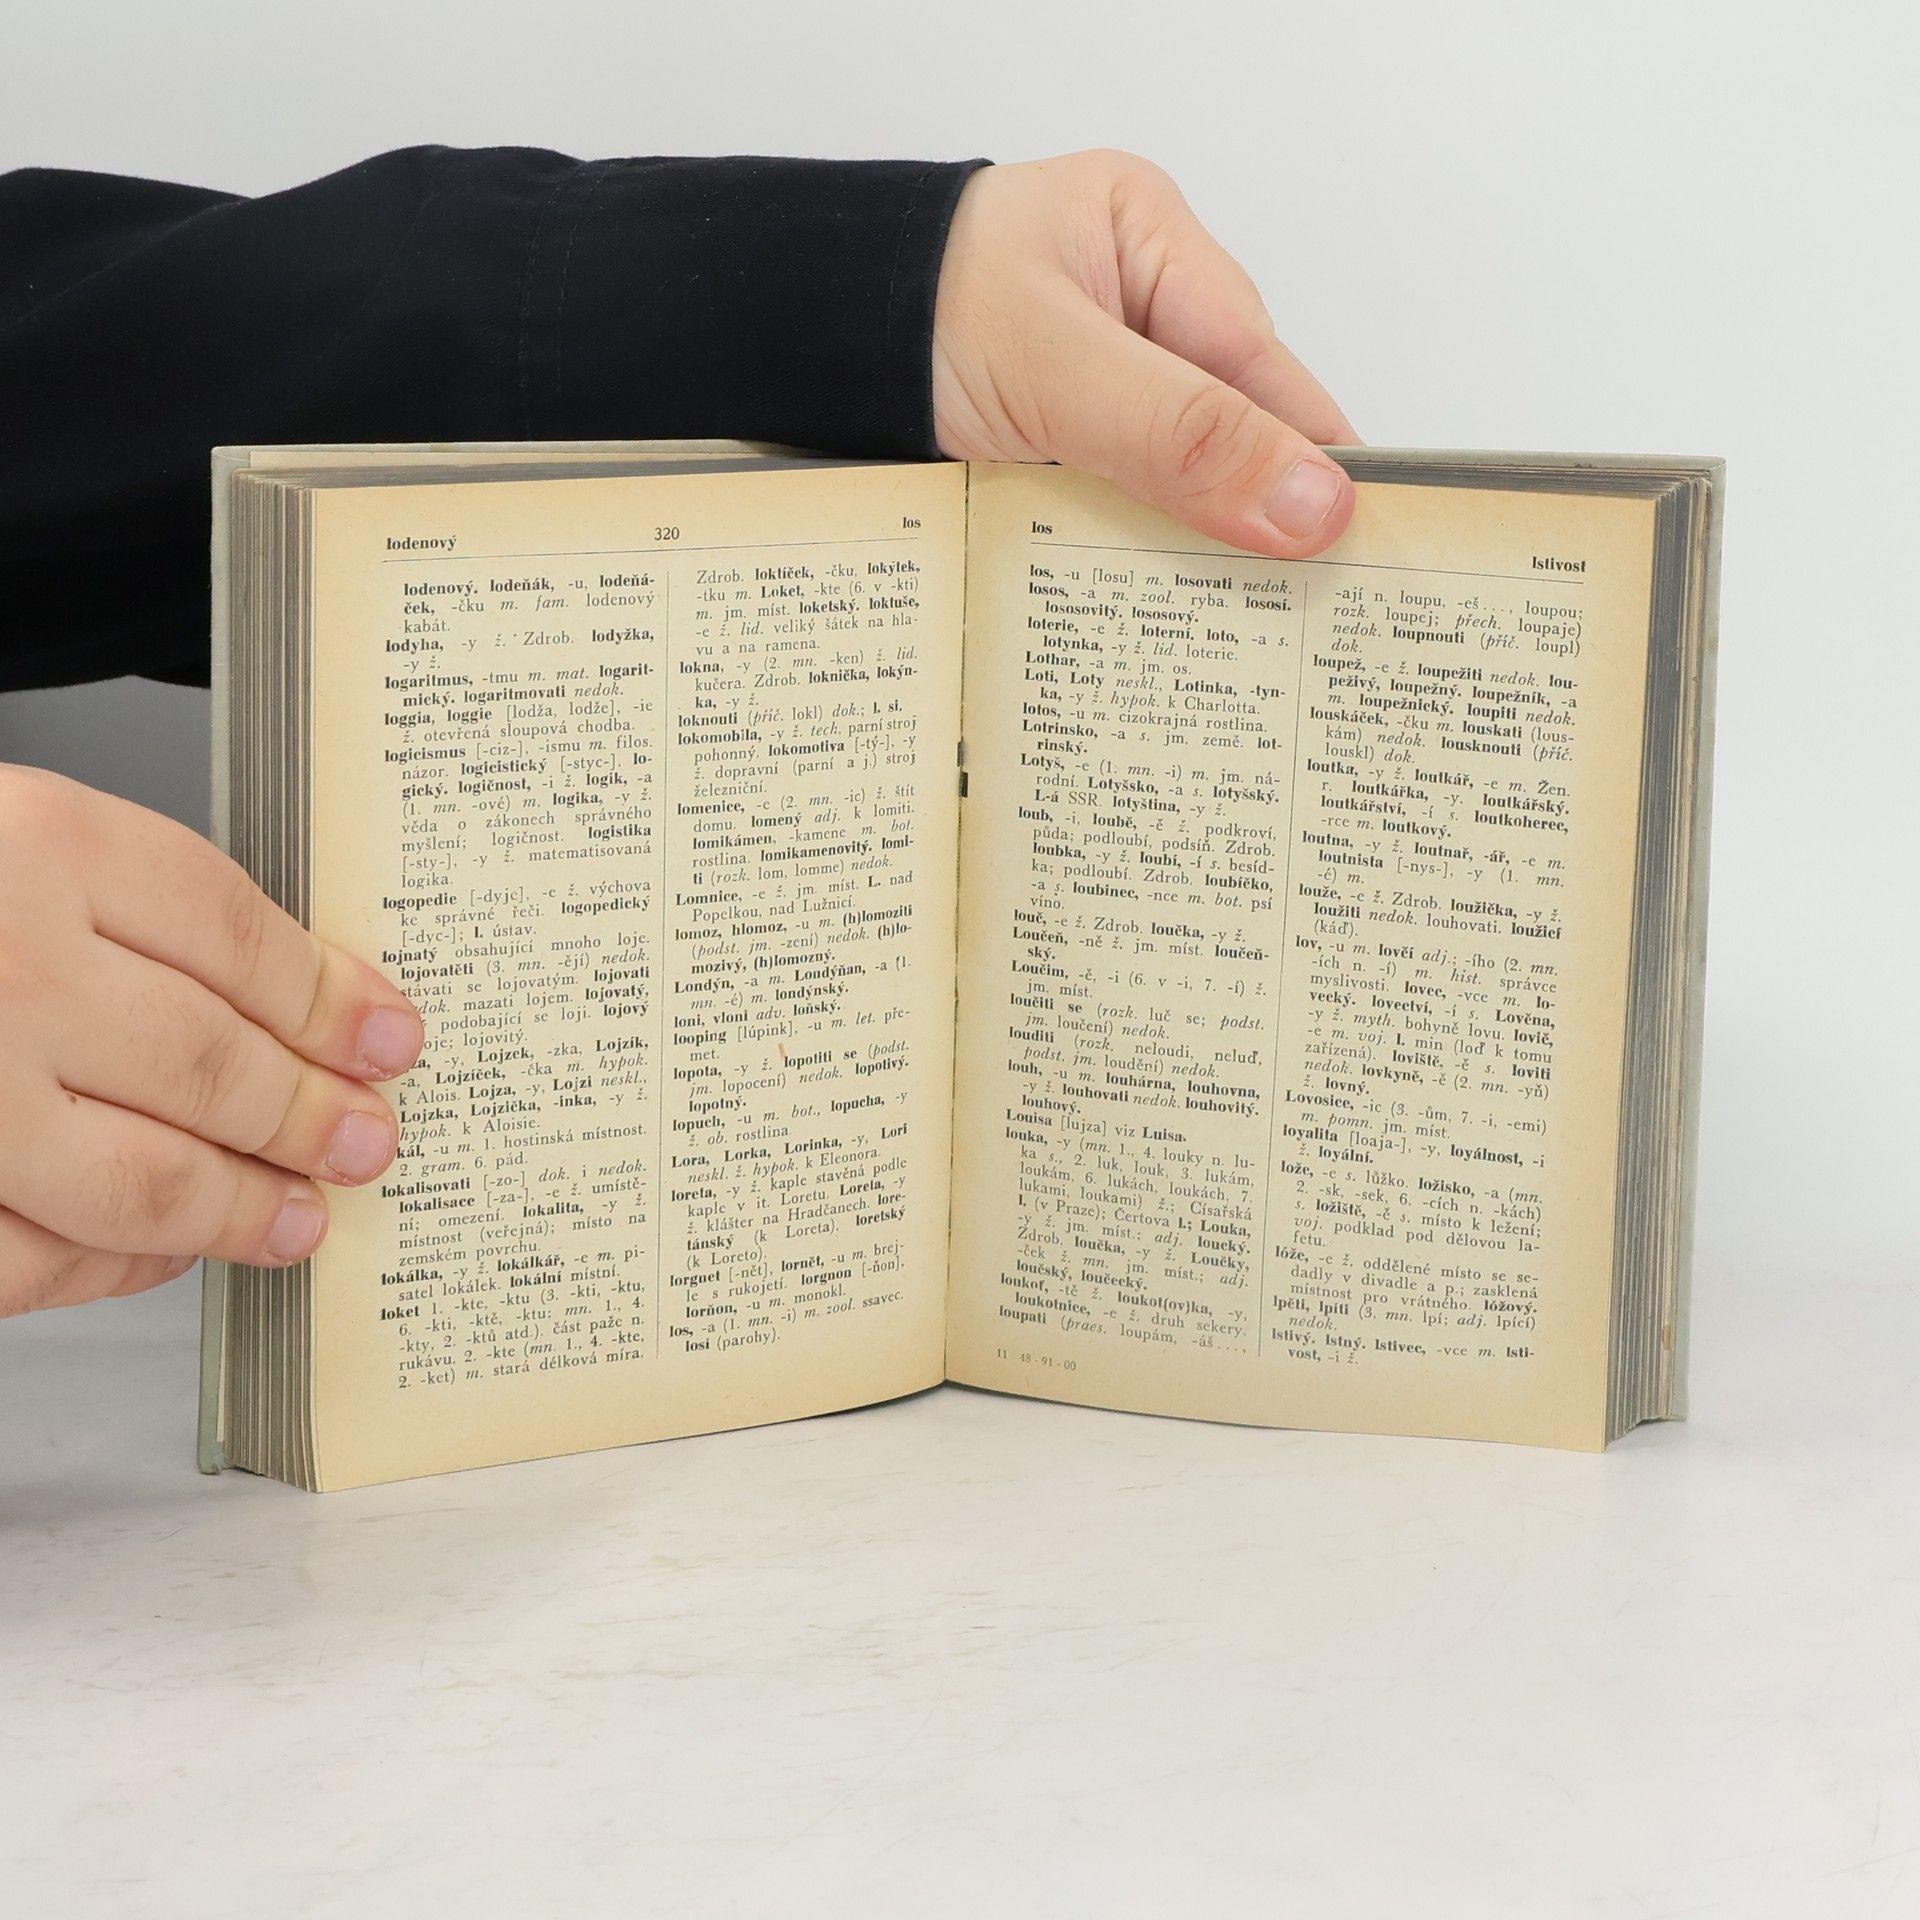 lodenový
320
los
lodenový. lodeňák, -u, lodeňá-
ček, -čku m. fam. lodenový
kabát.
lodyha, -y ž. Zdrob. lodyžka,
-y ž.
logaritmus, -tmu m. mat. logarit-
mický. logaritmovati nedok.
loggia, loggie [lodža, lodže], -ie
ž. otevřená sloupová chodba.
logicismus [-ciz-], -ismu m. filos.
názor. logicistický [-styc-]. lo-
gický. logičnost, -i ž. logik, -a
(1. mn. -ové) m. logika, -y ž.
věda o zákonech správného
myšlení; logičnost. logistika
[-sty-], -y ž. matematisovaná
logika.
logopedie [-dyje], -e ž. výchova
ke správné řeči. logopedický
[-dyc-]; l. ústav.
lojnatý obsahující mnoho loje.
lojovatěti (3. mn. -ějí) nedok.
stávati se lojovatým. lojovati
mazati lojem. lojovatý,
podobající se loji. lojový
lojovitý.
-y, Lojzek, -zka, Lojzík,
-a, Lojzíček, -čka m. hypok.
k Alois. Lojza, -y, Lojzi neskl.,
Lojzka, Lojzička, -inka, -y ž.
hypok. k Aloisie.
-u m. 1. hostinská místnost.
2. gram. 6. pád.
lokalisovati [-zo-] dok. i nedok.
lokalisace [-za-], -e ž. umístě-
ní; omezení. lokalita, -y ž.
místnost (veřejná); místo na
zemském povrchu.
lokálka, -y ž. lokálkář, -e m. pi-
satel lokálek. lokální místní.
loket 1. -kte, -ktu (3. -kti, -ktu,
6. -kti, -ktě, -ktu: mn. 1., 4.
-kty, 2. -ktů atd.). část paže n.
rukávu. 2. -kte (mn. 1., 4. -kte,
2. -ket) m. stará délková míra.
Zdrob. loktíček, -čku, lokýtek,
-tku m. Loket, -kte (6. v -kti)
m. jm. míst. loketský. loktuše,
-e ž. lid. veliký šátek na hla-
vu a na ramena.
lokna, -y (2. mn. -ken) ž. lid.
kučera. Zdrob. loknička, lokýn-
ka, -y ž.
loknouti (příč. lokl) dok.; l. si.
lokomobila, -y ž. tech. parní stroj
pohonný. lokomotiva [-tý-], -y
ž. dopravní (parní a j.) stroj
železniční.
lomenice, -e (2. mn. -ic) ž. štít
domu. lomený adj. k lomiti.
lomikámen, -kamene m. bot.
rostlina. lomikamenovitý. lomi-
ti (rozk. lom, lomme) nedok.
Lomnice, -e ž. jm. míst. L. nad
Popelkou, nad Lužnicí.
lomoz, hlomoz, -u m. (h)lomoziti
(podst. jm. -zení) nedok. (h)lo-
mozivý, (h)lomozný.
Londýn, -a m. Londýňan, -a (1.
mn. -é) m. londýnský.
loni, vloni adv. loňský.
looping [lúpink], -u m. let. pře-
met.
lopota, -y ž. lopotiti se (podst.
jm. lopocení) nedok. lopotivý.
lopotný.
lopuch, -u m. bot., lopucha, -y
ž. ob. rostlina.
Lora, Lorka, Lorinka, -y, Lori
neskl. ž. hypok. k Eleonora.
loreta, -y ž. kaple stavěná podle
kaple v it. Loretu. Loreta, -y
ž. klášter na Hradčanech. lore-
tánský (k Loreta). loretský
(k Loreto).
lorgnet [-nět], lornět, -u m. brej-
le s rukojetí. lorgnon [-ňon],
lorňon, -u m. monokl.
los, -a (1. mn. -i) m. zool. ssavec.
losí (parohy).
los
lstivost
los, -u [losu] m. losovati nedok.
losos, -a m. zool. ryba. lososí.
lososovitý. lososový.
loterie, -e ž. loterní. loto, -a s.
lotynka, -y ž. lid. loterie.
Lothar, -a m. jm. os.
Loti, Loty neskl., Lotinka, -tyn-
ka, -y ž. hypok. k Charlotta.
lotos, -u m. cizokrajná rostlina.
Lotrinsko, -a s. jm. země. lot-
rinský.
Lotyš, -e (1. mn. -i) m. jm. ná-
rodní. Lotyšsko, -a s. lotyšský.
L-á SSR. lotyština, -y ž.
loub, -i, loubě, -ě ž. podkroví,
půda; podloubí, podsíň. Zdrob.
loubka, -y ž. loubí, -í s. besíd-
ka; podloubí. Zdrob. loubíčko,
-a s. loubinec, -nce m. bot. psí
víno.
louč, -e ž. Zdrob. loučka, -y ž.
Loučeň, -ně ž. jm. míst. loučeň-
ský.
Loučim, -ě, -i (6. v -i, 7. -í) ž.
jm. míst.
loučiti se (rozk. luč se; podst.
jm. loučení) nedok.
louditi (rozk. neloudi, neluď,
podst. jm. loudění) nedok.
louh, -u m. louhárna, louhovna,
-y ž. louhovati nedok. louhovitý.
louhový.
Louisa [lujza] viz Luisa.
louka, -y (mn. 1., 4. louky n. lu-
ka s., 2. luk, louk, 3. lukám,
loukám, 6. lukách, loukách, 7.
lukami, loukami) ž.; Císařská
l. (v Praze); Čertova l.; Louka,
-y ž. jm. míst.; adj. loucký.
Zdrob. loučka, -y ž. Loučky,
-ček ž. mn. jm. míst.; adj.
loučský, loučecký.
loukoť, -tě ž. loukoť(ov)ka, -y,
loukotnice, -e ž. druh sekery.
loupati (praes. loupám, -áš ...,
11 48 - 91 - 00
-ají n. loupu, -eš ..., loupou;
rozk. loupej; přech. loupaje)
nedok. loupnouti (příč. loupl)
dok.
loupež, -e ž. loupežiti nedok. lou-
peživý, loupežný. loupežník, -a
m. loupežnický. loupiti nedok.
louskáček, -čku m. louskati (lous-
kám) nedok. lousknouti (příč.
louskl) dok.
loutka, -y ž. loutkář, -e m. Žen.
r. loutkářka, -y. loutkářský.
loutkářství, -í s. loutkoherec,
-rce m. loutkový.
loutna, -y ž. loutnař, -ář, -e m.
loutnista [-nys-], -y (1. mn.
-é) m.
louže, -e ž. Zdrob. loužička, -y ž.
loužiti nedok. louhovati. loužicí
(káď).
lov, -u m. lovčí adj.; -ího (2. mn.
-ích n. -í) m. hist. správce
myslivosti. lovec, -vce m. lo-
vecký. lovectví, -í s. Lověna,
-y ž. myth. bohyně lovu. lovič,
-e m. voj. l. min (loď k tomu
zařízená). loviště, -ě s. loviti
nedok. lovkyně, -ě (2. mn. -yň)
ž. lovný.
Lovosice, -ic (3. -ům, 7. -i, -emi)
m. pomn. jm. míst.
loyalita [loaja-], -y, loyálnost, -i
ž. loyální.
lože, -e s. lůžko. ložisko, -a (mn.
2. -sk, -sek, 6. -cích n. -kách)
s. ložiště, -ě s. místo k ležení;
voj. podklad pod dělovou la-
fetu.
lóže, -e ž. oddělené místo se se-
dadly v divadle a p.; zasklená
místnost pro vrátného. lóžový.
lpěti, lpíti (3. mn. lpí; adj. lpící)
nedok.
lstivý. lstný. lstivec, -vce m. lsti-
vost, -i ž.